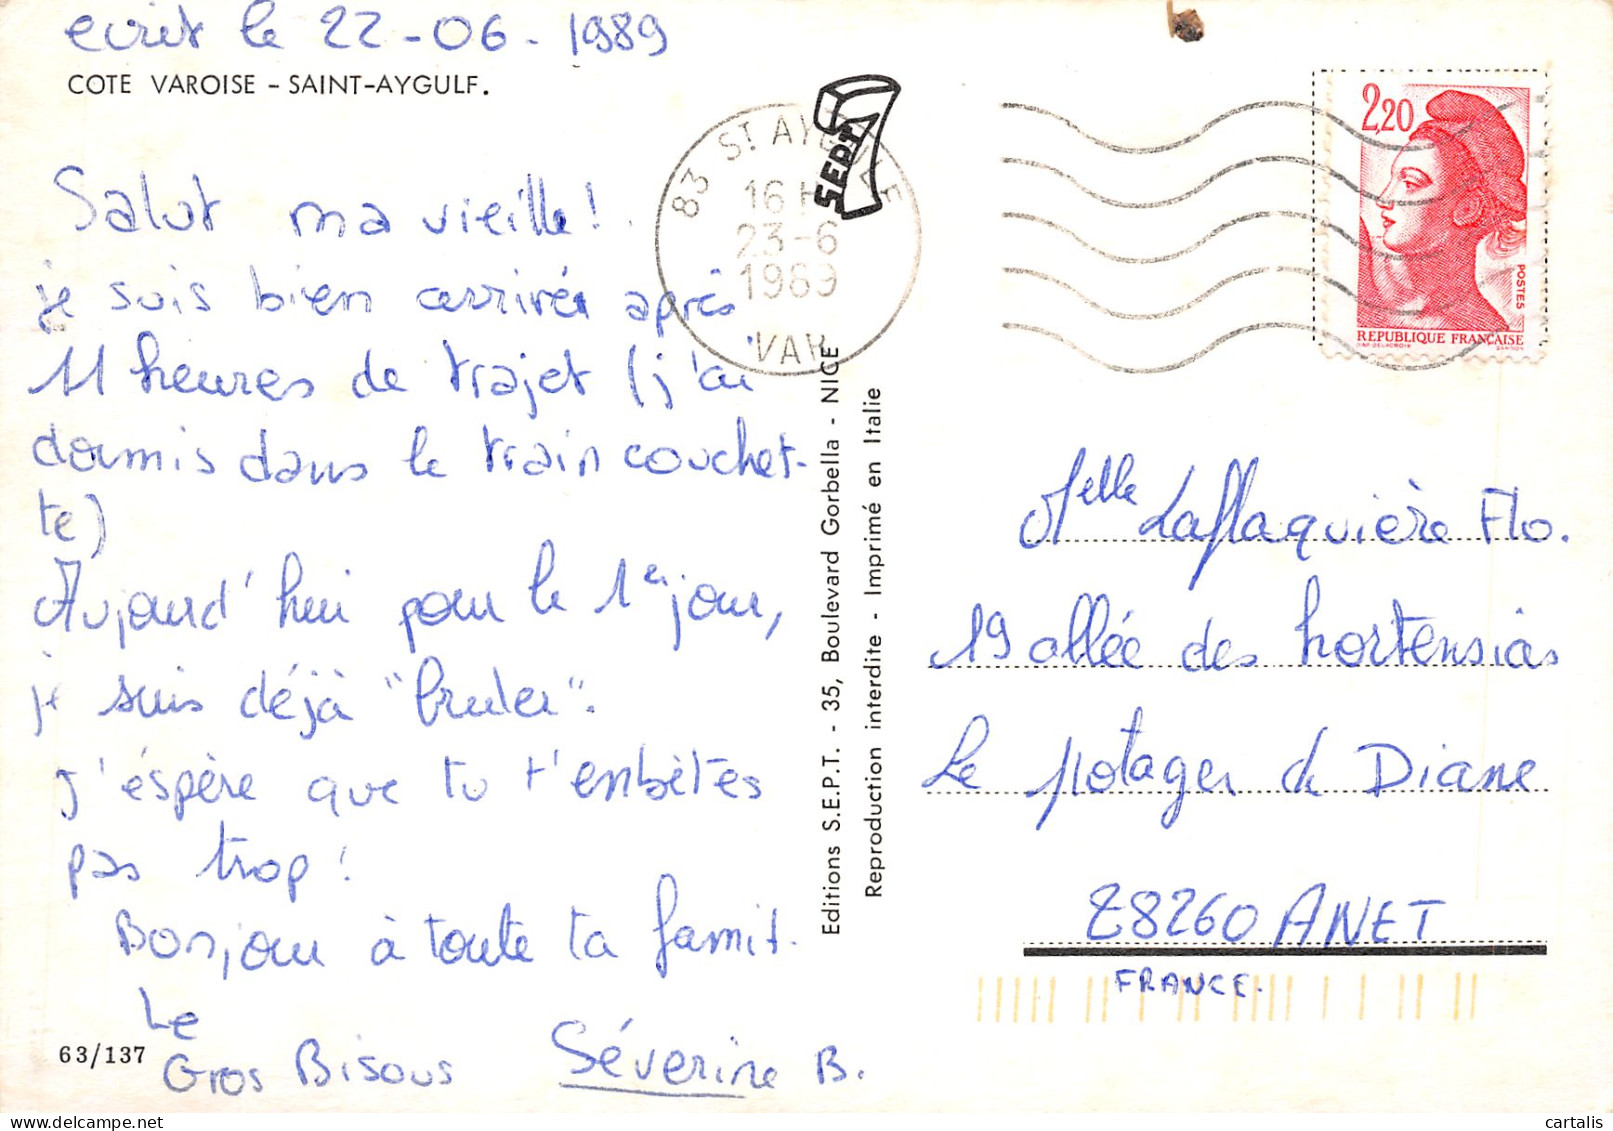 ecrit le 22-06-1989
COTE VAROISE - SAINT-AYGULF.
Salut ma vieille!
je suis bien arrivée après
11 heures de trajet (j'ai
dormis dans le train couchet-
te)
Aujourd'hui pour le 1er jour,
je suis déjà "bruler".
J'éspère que tu t'enbètes
pas trop!
Bonjour à toute ta famil-
le
Gros Bisous Séverine B.
63/137
83 ST AYGULF
16 H
23-6
1989
VAR
SEPT
7
Editions S.E.P.T. - 35, Boulevard Gorbella - NICE
Reproduction interdite - Imprimé en Italie
2,20
POSTES
REPUBLIQUE FRANÇAISE
Melle Laflaquière Flo.
19 allée des hortensias
Le potager de Diane
28260 ANET
FRANCE.
cartalis